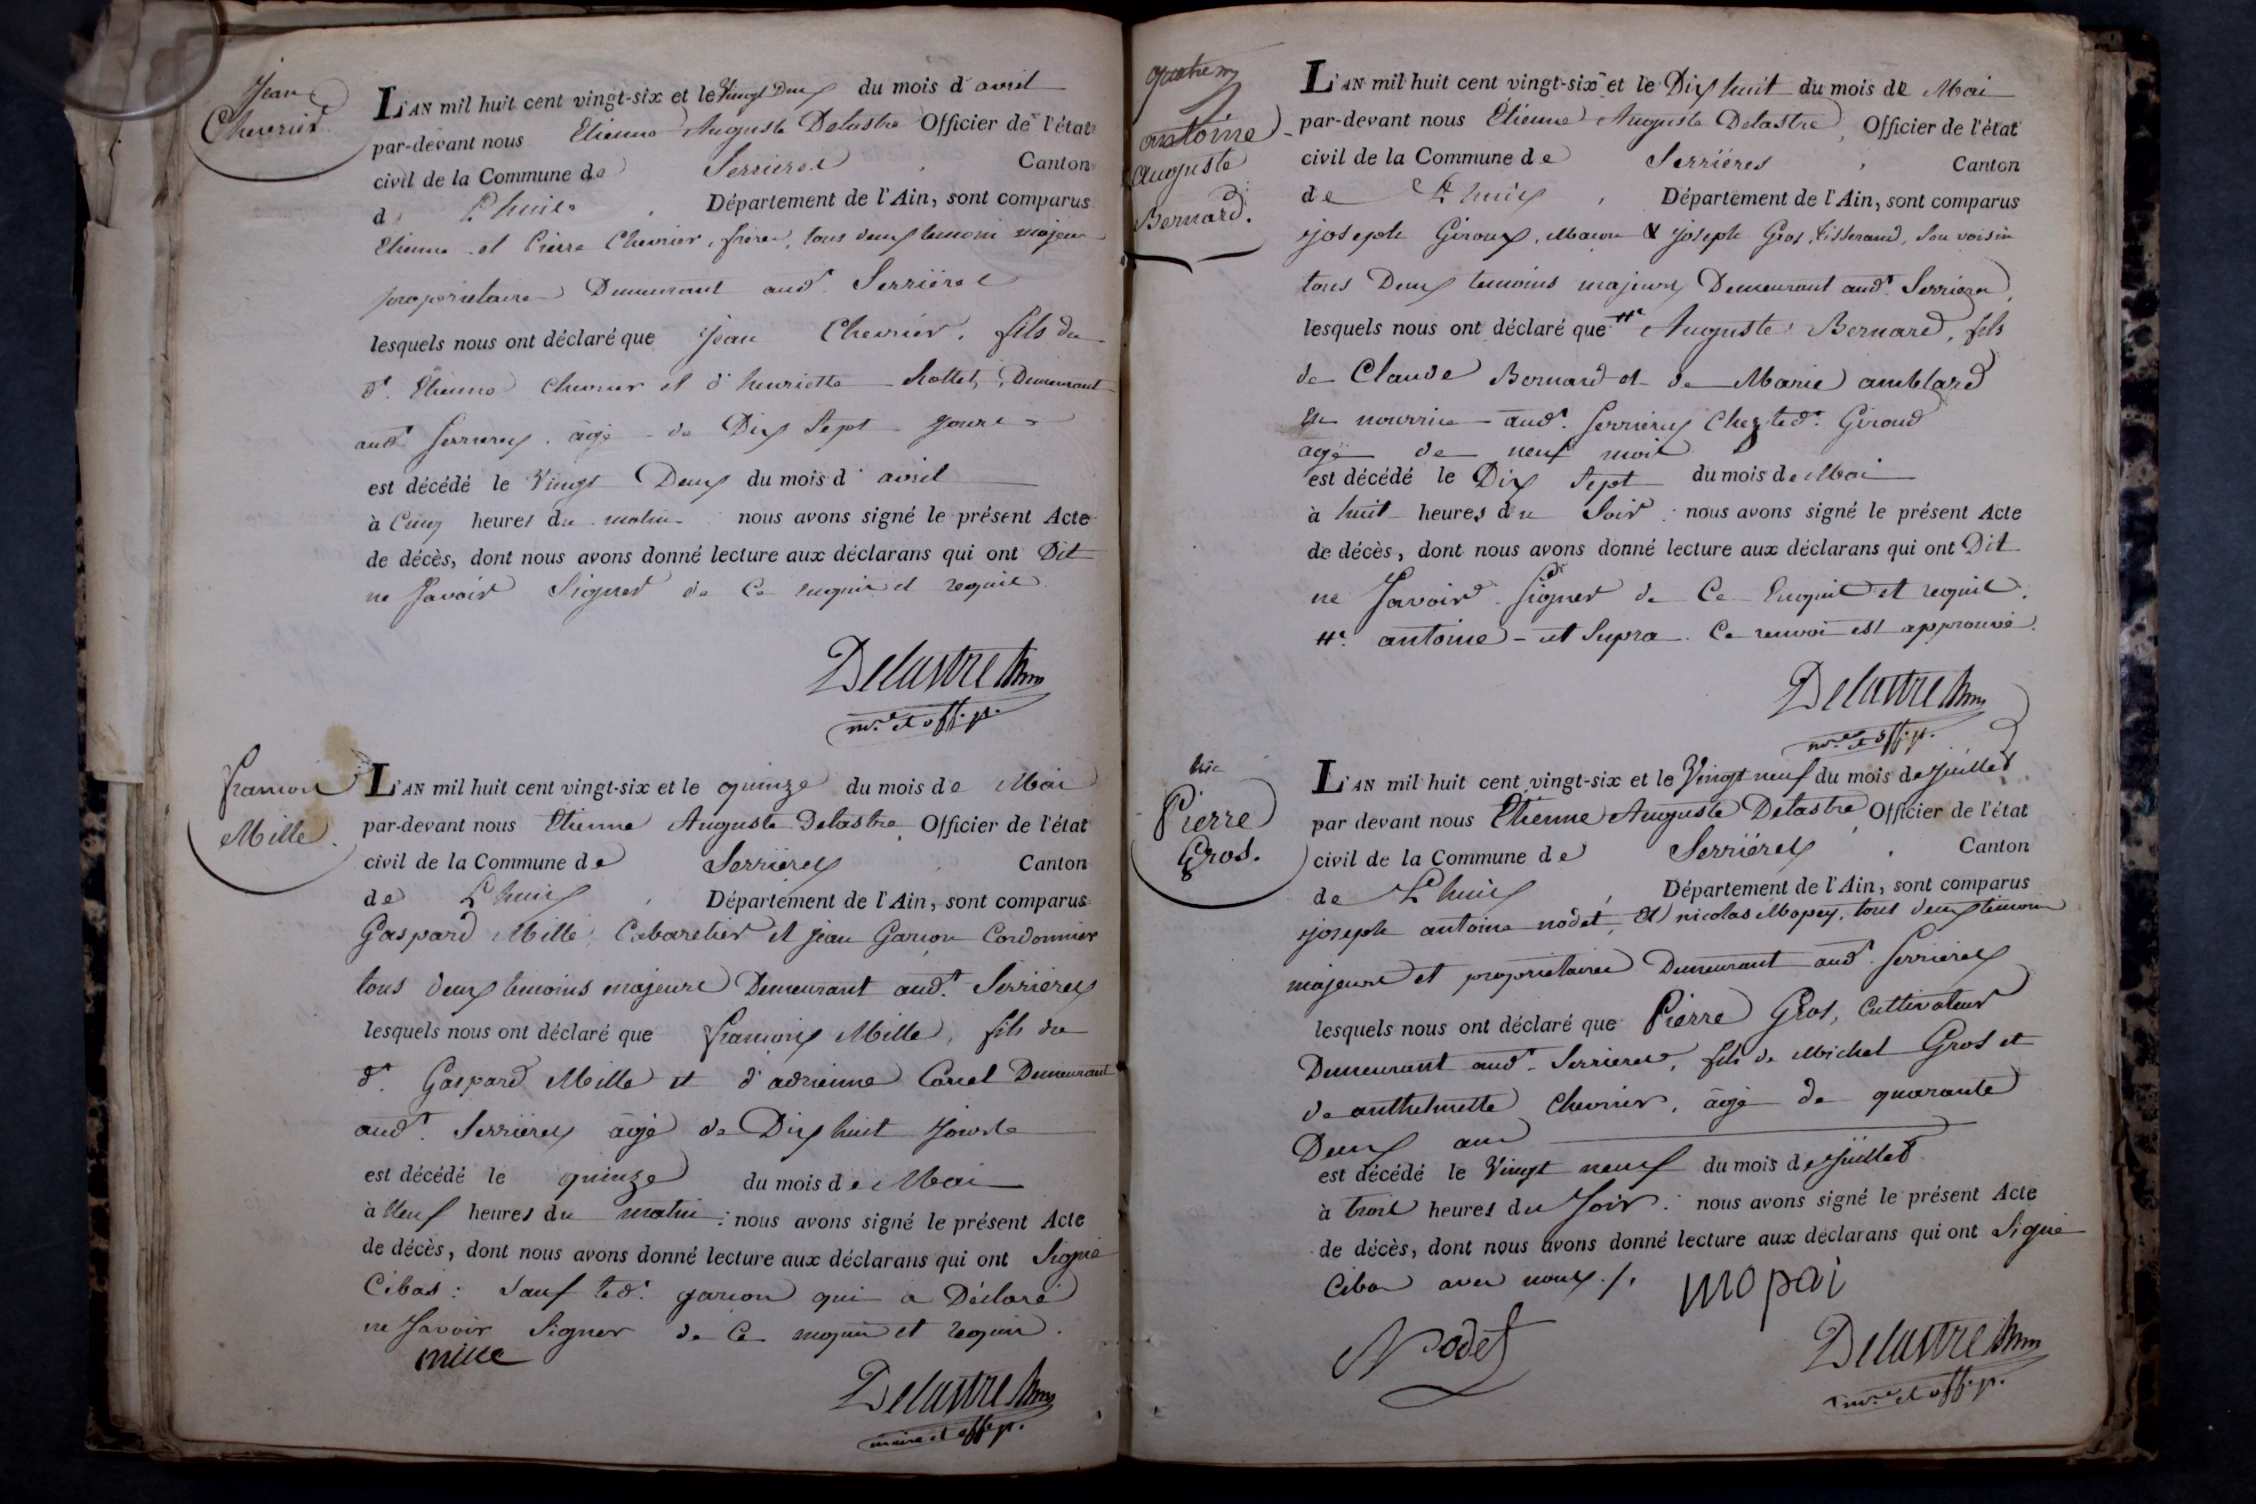 Jean
Chevrier
L'AN mil huit cent vingt-six et le Vingt Deux du mois d'avril
par-devant nous Etienne Auguste Delastre Officier de l'état
civil de la Commune de Serrieres, Canton
de Lhuis, Département de l'Ain, sont comparus
Etienne et Pierre Chevrier, freres, tous deux temoins majeurs
propriétaires Demeurant aud.t Serriéres
lesquels nous ont déclaré que Jean Chevrier, fils du
d.t Etienne Chevrier et d'henriette Demeurant
aud.t Serrieres, âgé de Dix Sept Jours
est décédé le Vingt Deux du mois d'avril
à Cinq heures du matin nous avons signé le présent Acte
de décès, dont nous avons donné lecture aux déclarans qui ont Dit
ne Savoir Signer de Ce enquis et requis
Delastre
m.re et off. p.
francois
Mille.
L'AN mil huit cent vingt-six et le quinze du mois de Mai
par-devant nous Etienne Auguste Delastre, Officier de l'état
civil de la Commune de Serriéres, Canton
de Lhuis, Département de l'Ain, sont comparus
Gaspard Mille, Cabaretier et jean Garion Cordonnier
tous deux temoins majeurs Demeurant aud.t Serriéres
lesquels nous ont déclaré que francois Mille, fils du
d.t Gaspard Mille et d'adrienne Carrel Demeurant
aud.t Serriéres âgé de Dix huit Jours
est décédé le quinze du mois de Mai
à Neuf heures du matin: nous avons signé le présent Acte
de décès, dont nous avons donné lecture aux déclarans qui ont Signé
Cibas: Sauf led.t garion qui a Déclaré
ne Savoir Signer de Ce enquis et requis.
mille
Delastre
maire et off. p.
antoine
Auguste
Bernard.
L'AN mil huit cent vingt-six et le Dix huit du mois de Mai
par-devant nous Etienne Auguste Delastre, Officier de l'état
civil de la Commune de Serriéres, Canton
de Lhuis, Département de l'Ain, sont comparus
joseph Giroux, Macon & joseph Gros, tisserand, Son voisin
tous Deux temoins majeurs Demeurant aud.t Serrieres,
lesquels nous ont déclaré que # Auguste Bernard, fils
de Claude Bernard et de Marie amblard
En nourrice aud.t Serriéres Chez led.t Giroud
agé de neuf mois
est décédé le Dix Sept du mois de Mai
à huit heures du Soir: nous avons signé le présent Acte
de décès, dont nous avons donné lecture aux déclarans qui ont Dit
ne Savoir Signer de Ce Enquis et requis.
# antoine - ut Supra. Ce renvoi est approuvé.
Delastre
m.re et off. p.
Pierre
Gros.
L'AN mil huit cent vingt-six et le Vingt neuf du mois de Juillet
par devant nous Etienne Auguste Delastre, Officier de l'état
civil de la Commune de Serriéres, Canton
de Lhuis, Département de l'Ain, sont comparus
joseph antoine nodet, Et nicolas Mopey, tous deux temoins
majeurs et propriétaires Demeurant aud.t Serriéres
lesquels nous ont déclaré que Pierre Gros, Cultivateur
Demeurant aud.t Serrieres, fils de Michel Gros et
de anthelmette Chevrier, âgé de quarante
Deux ans
est décédé le Vingt neuf du mois de Juillet
à trois heures du Soir: nous avons signé le présent Acte
de décès, dont nous avons donné lecture aux déclarans qui ont Signé
Cibas avec nous ./.
mopai
Nodet
Delastre
m.re et off. p.